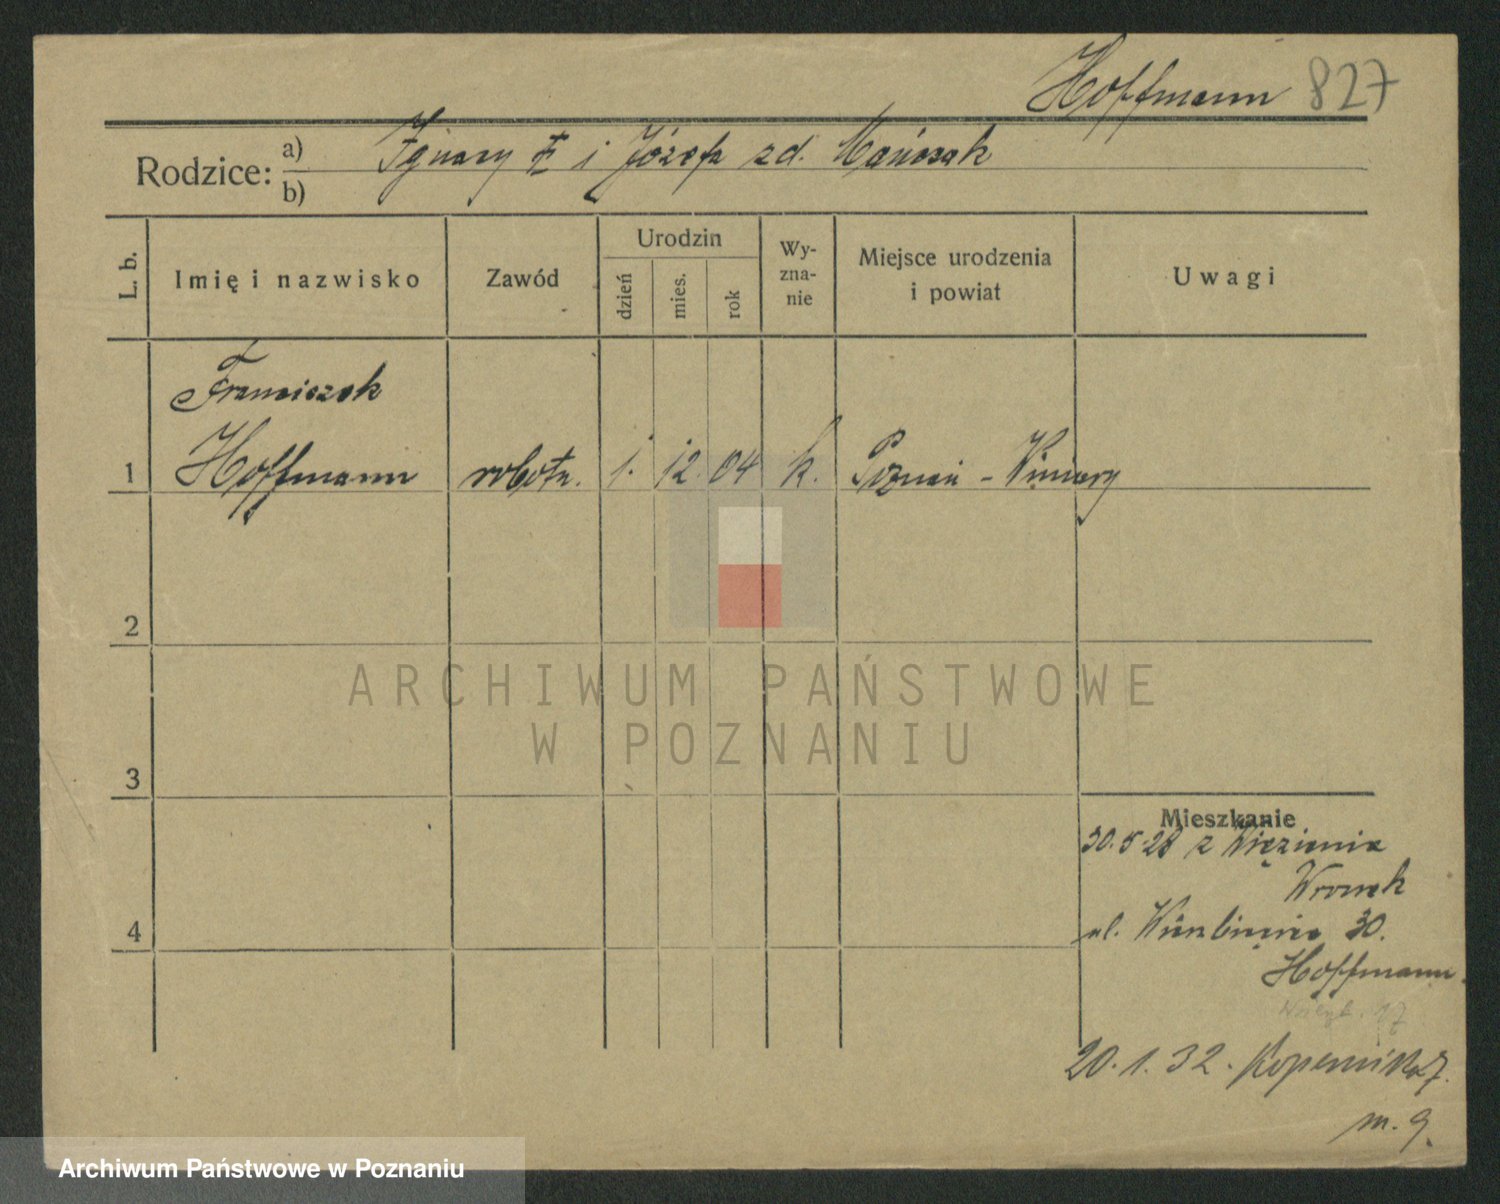 Hoffmann 827
Rodzice: a) Ignacy i Józefa zd.
b)
L. b.
Imię i nazwisko
Zawód
Urodzin
dzień
mies.
rok
Wy-
zna-
nie
Miejsce urodzenia
i powiat
Uwagi
Franciszek
1 Hoffmann robotn. 1. 12. 04 k. Poznań - Winiary
2
3
4
Mieszkanie
30.5.28 z Więzienia
Wronek
ul. 30.
Hoffmann
20.1.32. Kopernika 7.
m. 9.
ARCHIWUM PAŃSTWOWE
W POZNANIU
Archiwum Państwowe w Poznaniu